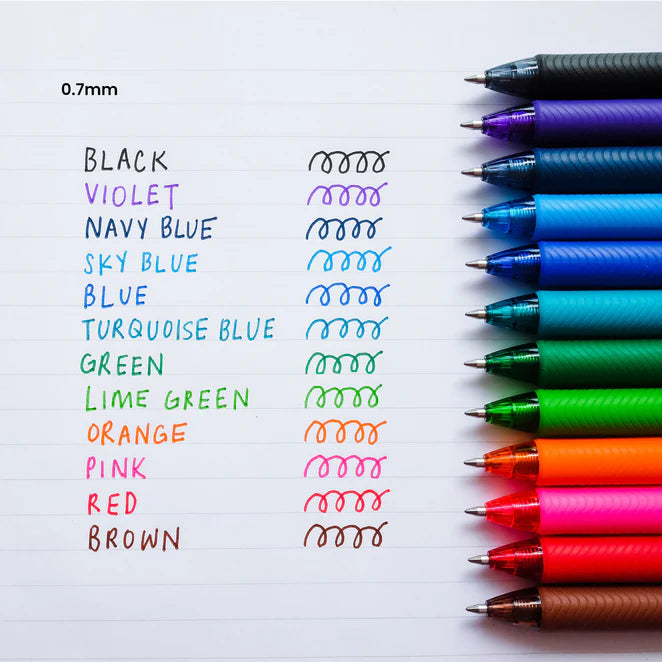 0.7mm
BLACK
VIOLET
NAVY BLUE
SKY BLUE
BLUE
TURQUOISE BLUE
GREEN
LIME GREEN
ORANGE
PINK
RED
BROWN